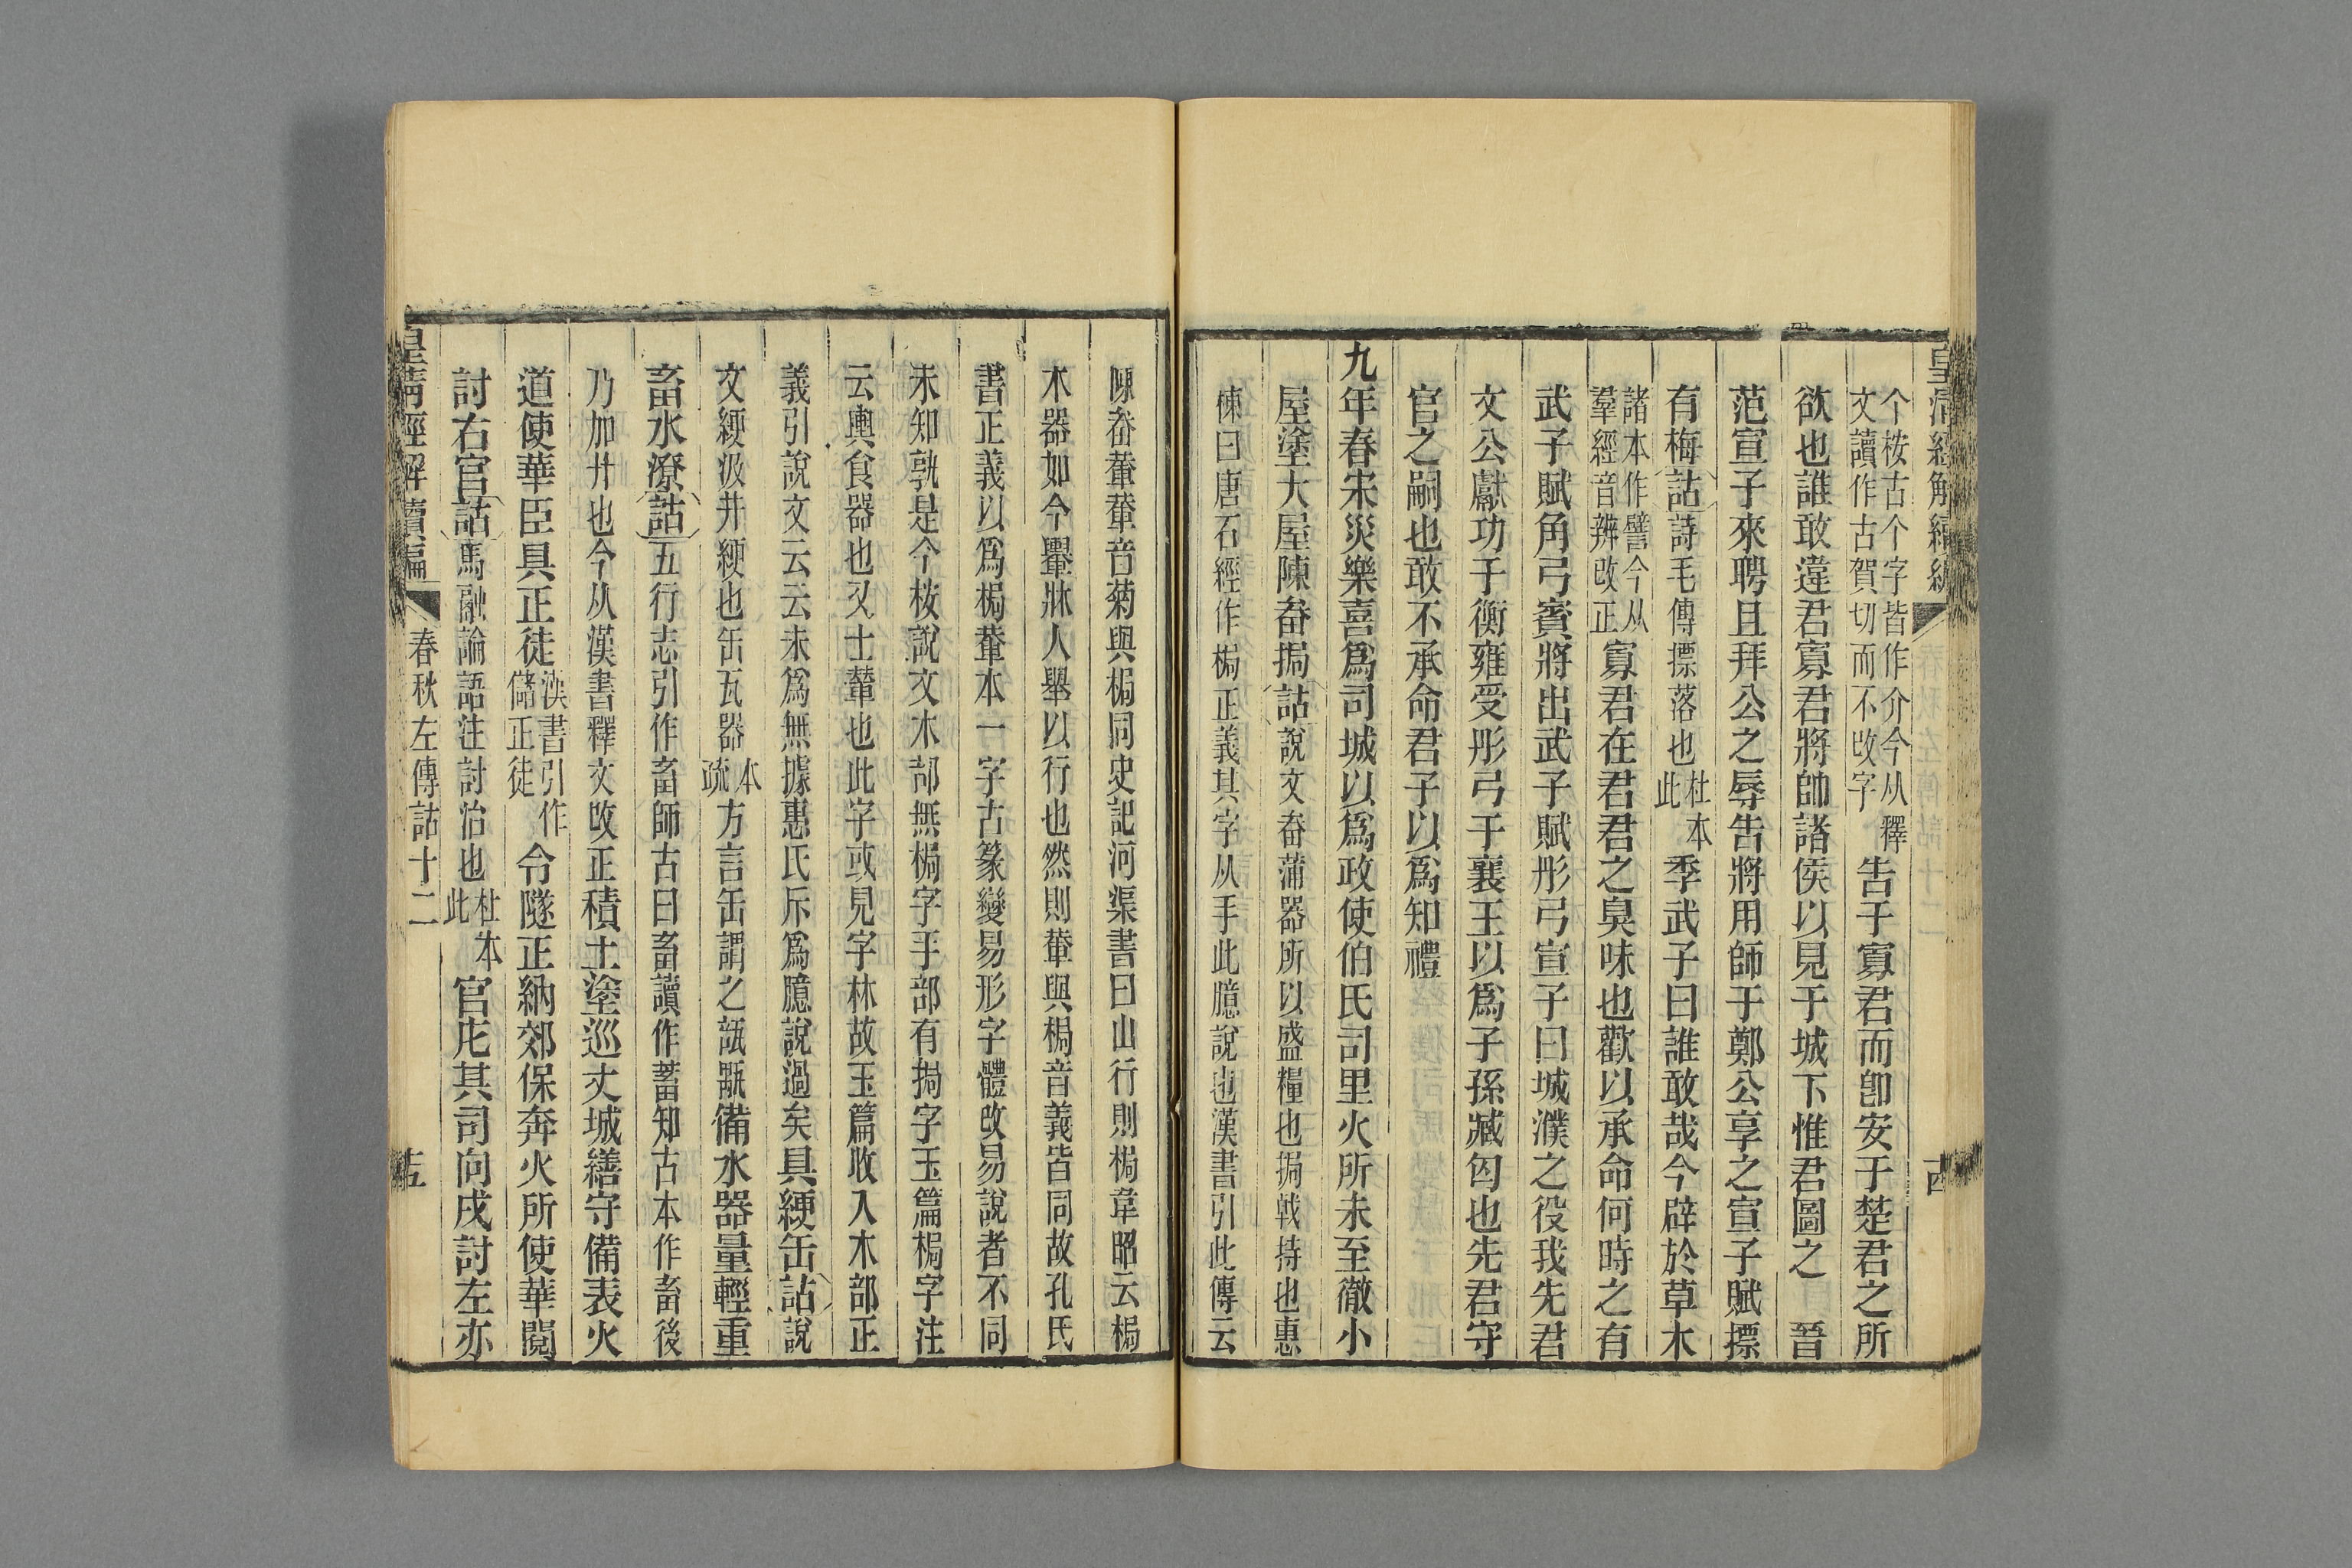 皇清經解續編
个桉古个字皆作介今从釋
文讀作古賀切而不改字
告于寡君而卽安于楚君之所
欲也誰敢違君寡君將帥諸侯以見于城下惟君圖之　晉
范宣子來聘且拜公之辱告將用師于鄭公享之宣子賦摽
有梅詁詩毛傳摽落也杜本此季武子曰誰敢哉今辟於草木
諸本作譬今从
羣經音辨改正
寡君在君君之臭味也歡以承命何時之有
武子賦角弓賓將出武子賦彤弓宣子曰城濮之役我先君
文公獻功于衡雍受彤弓于襄王以爲子孫臧匄也先君守
官之嗣也敢不承命君子以爲知禮
九年春宋災樂喜爲司城以爲政使伯氏司里火所未至徹小
屋塗大屋陳畚挶詁說文畚蒲器所以盛糧也挶戟持也惠
棟曰唐石經作梮正義其字从手此臆說也漢書引此傳云
十四
陳畚輂輂音菊與梮同史記河渠書曰山行則梮韋昭云梮
木器如今轝牀人舉以行也然則輂與梮音義皆同故孔氏
書正義以爲梮輂本一字古篆變易形字體改易說者不同
未知孰是今桉說文木部無梮字手部有挶字玉篇梮字注
云輿食器也又士轝也此字或見字林故玉篇收入木部正
義引說文云云未爲無據惠氏斥爲臆說過矣具綆缶詁說
文綆汲井綆也缶瓦器本疏方言缶謂之瓿甂備水器量輕重
畜水潦詁五行志引作畜師古曰畜讀作蓄知古本作畜後
乃加艹也今从漢書釋文改正積土塗巡丈城繕守備表火
道使華臣具正徒漢書引作儲正徒令隧正納郊保奔火所使華閱
討右官詁馬融論語注討治也杜本此官庀其司向戌討左亦
皇清經解續編　春秋左傳詁十二　十五